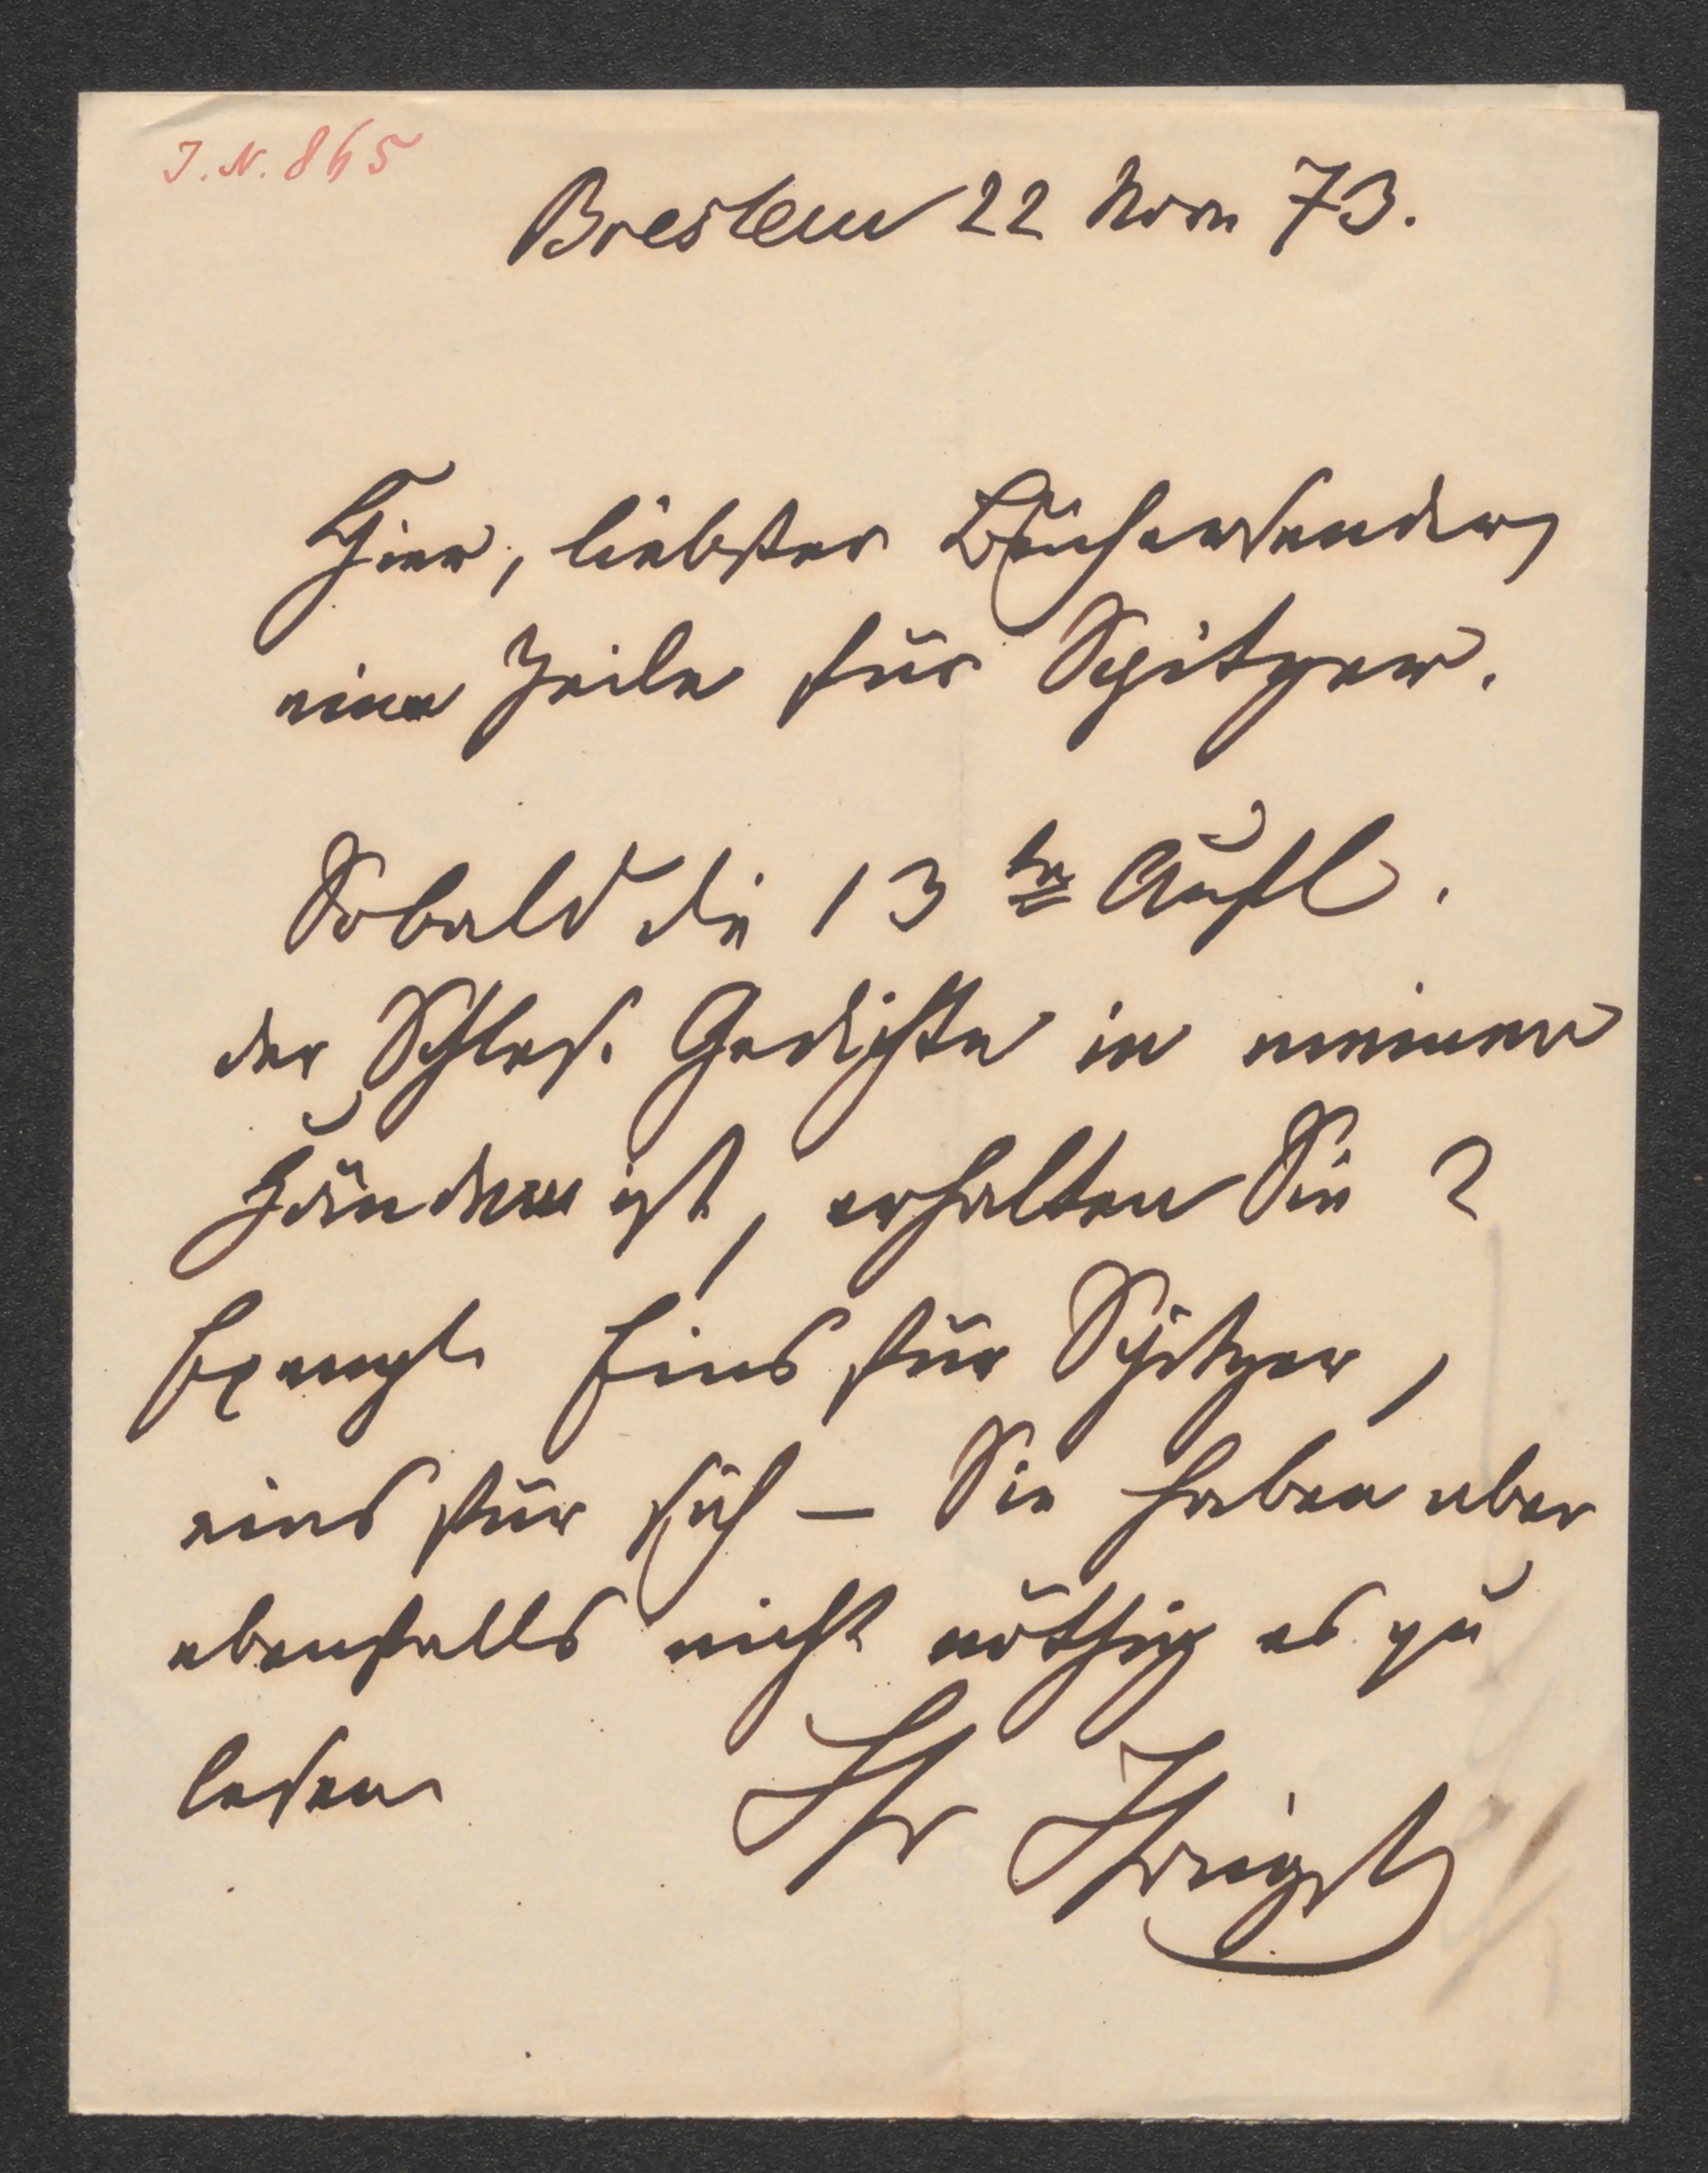 J. N. 865
Breslau 22 Nov 73.
Hier, liebster Büchersender,
eine Zeile für Spitzer.
Sobald die 13te Aufl.
der Schles. Gedichte in meinen
Händen ist, erhalten Sie 2
Exempl. Eins für Spitzer,
eins für sich – Sie haben aber
ebenfalls nicht nöthig es zu
lesen
Ihr